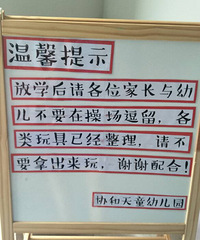 温馨提示
放学后请各位家长与幼
儿不要在操场逗留，各
类玩具已经整理，请不
要拿出来玩，谢谢配合！
协和天童幼儿园